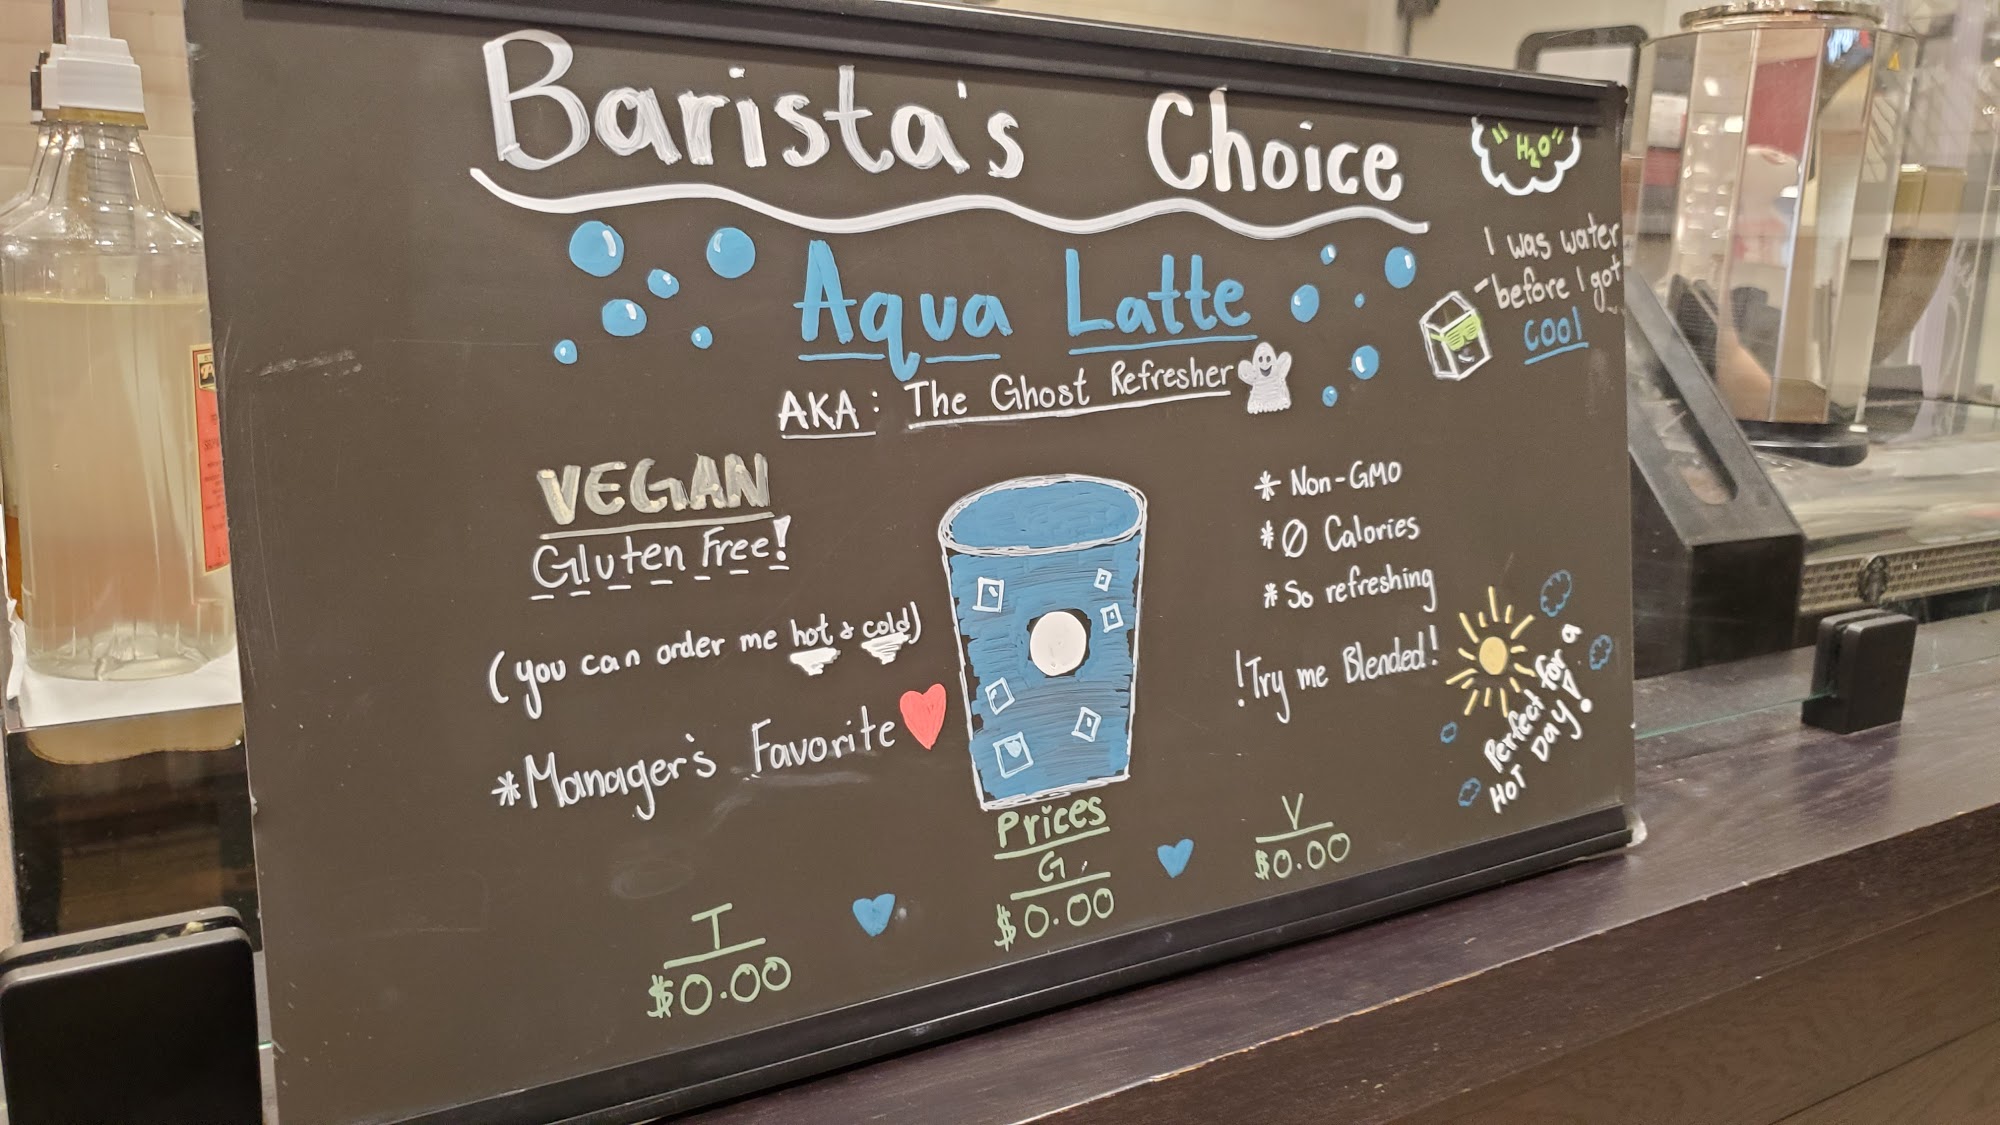 Barista's Choice
"H2O"
Aqua Latte
I was water
before I got
COOl
AKA: The Ghost Refresher
VEGAN
Gluten Free!
(you can order me hot & cold)
*Manager's Favorite
* Non-GMO
* 0 Calories
* So refreshing
!Try me Blended!
Perfect for a
HOT DAY!
Prices
T
$0.00
G
$0.00
V
$0.00